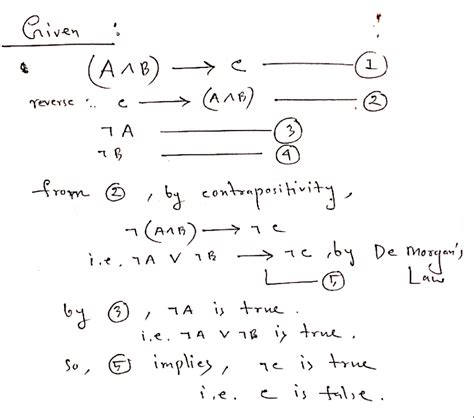 Given :
(A ∧ B) ⟶ c ——— ①
reverse :. c ⟶ (A∧B) ——— ②
¬ A ——— ③
¬ B ——— ④
from ②, by contrapositivity,
¬ (A∧B) ⟶ ¬ c
i.e. ¬A ∨ ¬B ⟶ ¬c, by De Morgan's Law
⑤
by ③, ¬A is true.
i.e. ¬A ∨ ¬B is true.
So, ⑤ implies, ¬c is true
i.e. c is false.